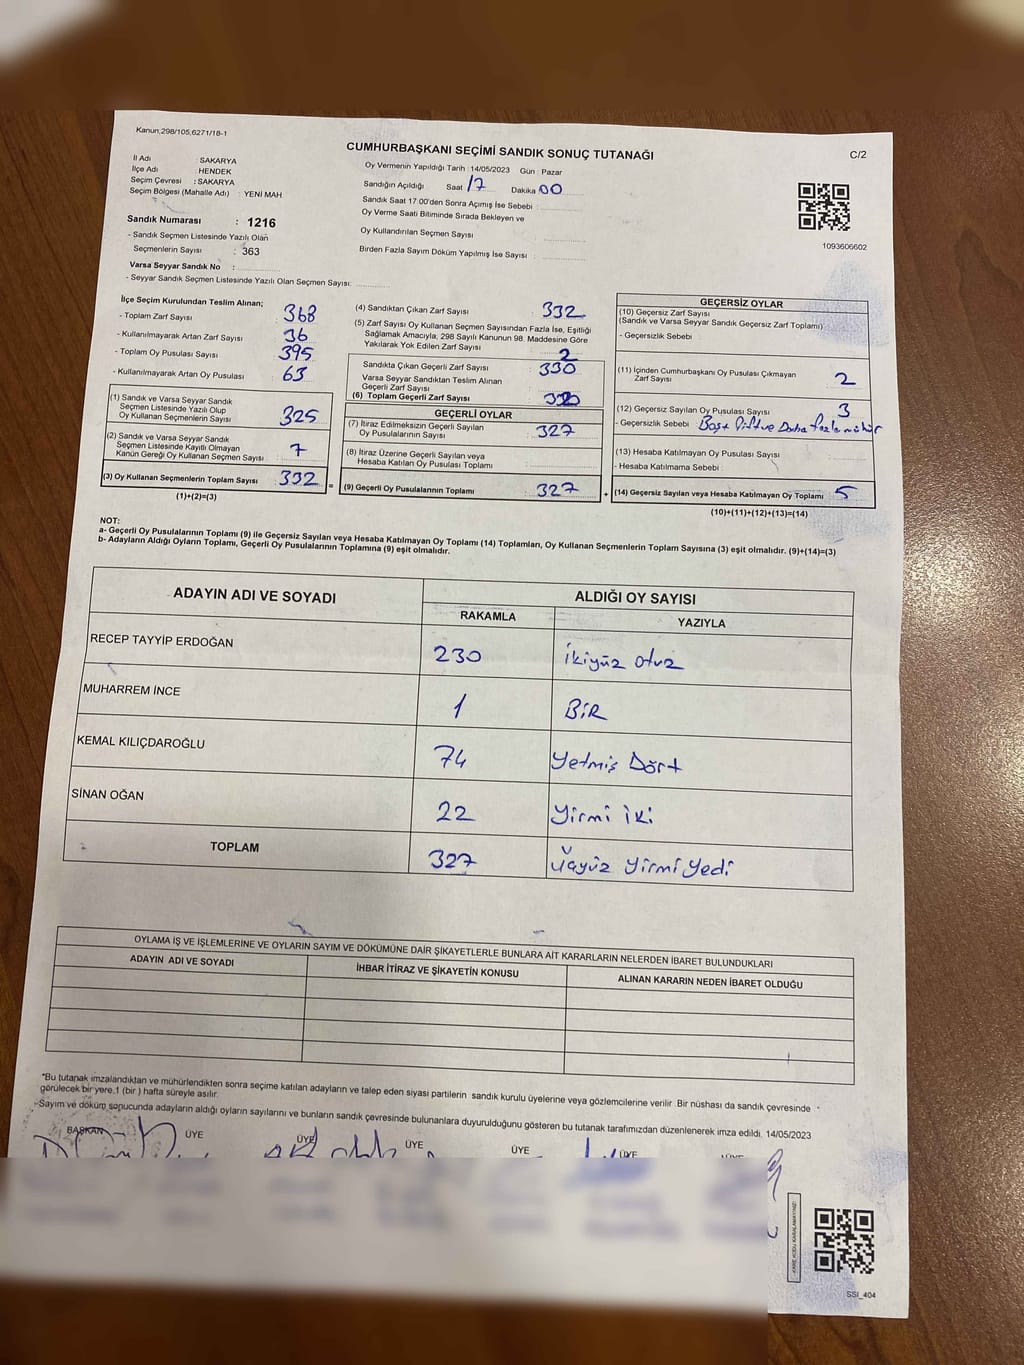 Kanun,298/105,6271/18-1
CUMHURBAŞKANI SEÇİMİ SANDIK SONUÇ TUTANAĞI
C/2
İl Adı : SAKARYA
İlçe Adı : HENDEK
Seçim Çevresi : SAKARYA
Seçim Bölgesi (Mahalle Adı) : YENİ MAH
Sandık Numarası : 1216
- Sandık Seçmen Listesinde Yazılı Olan
Seçmenlerin Sayısı : 363
Varsa Seyyar Sandık No :
- Seyyar Sandık Seçmen Listesinde Yazılı Olan Seçmen Sayısı:
Oy Vermenin Yapıldığı Tarih : 14/05/2023 Gün : Pazar
Sandığın Açıldığı Saat 17 Dakika 00
Sandık Saat 17 00'den Sonra Açımış İse Sebebi :
Oy Verme Saati Bitiminde Sırada Bekleyen ve
Oy Kullandırılan Seçmen Sayısı
Birden Fazla Sayım Döküm Yapılmış İse Sayısı :
1093606602
İlçe Seçim Kurulundan Teslim Alınan;
- Toplam Zarf Sayısı : 368
- Kullanılmayarak Artan Zarf Sayısı : 36
- Toplam Oy Pusulası Sayısı : 395
- Kullanılmayarak Artan Oy Pusulası : 63
(1) Sandık ve Varsa Seyyar Sandık
Seçmen Listesinde Yazılı Olup
Oy Kullanan Seçmenlerin Sayısı : 325
(2) Sandık ve Varsa Seyyar Sandık
Seçmen Listesinde Kayıtlı Olmayan
Kanun Gereği Oy Kullanan Seçmen Sayısı : 7
(3) Oy Kullanan Seçmenlerin Toplam Sayısı : 332
(1)+(2)=(3)
(4) Sandıktan Çıkan Zarf Sayısı : 332
(5) Zarf Sayısı Oy Kullanan Seçmen Sayısından Fazla İse, Eşitliği
Sağlamak Amacıyla, 298 Sayılı Kanunun 98. Maddesine Göre
Yakılarak Yok Edilen Zarf Sayısı 2
Sandıkta Çıkan Geçerli Zarf Sayısı : 330
Varsa Seyyar Sandıktan Teslim Alınan
Geçerli Zarf Sayısı
(6) Toplam Geçerli Zarf Sayısı
GEÇERLİ OYLAR
(7) İtiraz Edilmeksizin Geçerli Sayılan
Oy Pusulalarının Sayısı : 327
(8) İtiraz Üzerine Geçerli Sayılan veya
Hesaba Katılan Oy Pusulası Toplamı
= (9) Geçerli Oy Pusulalarının Toplamı : 327
GEÇERSİZ OYLAR
(10) Geçersiz Zarf Sayısı
(Sandık ve Varsa Seyyar Sandık Geçersiz Zarf Toplamı)
- Geçersizlik Sebebi :
(11) İçinden Cumhurbaşkanı Oy Pusulası Çıkmayan
Zarf Sayısı 2
(12) Geçersiz Sayılan Oy Pusulası Sayısı 3
- Geçersizlik Sebebi Boş + Çift ve Daha fazla mühür
(13) Hesaba Katılmayan Oy Pusulası Sayısı
- Hesaba Katılmama Sebebi :
+ (14) Geçersiz Sayılan veya Hesaba Katılmayan Oy Toplamı : 5
(10)+(11)+(12)+(13)=(14)
NOT:
a- Geçerli Oy Pusulalarının Toplamı (9) ile Geçersiz Sayılan veya Hesaba Katılmayan Oy Toplamı (14) Toplamları, Oy Kullanan Seçmenlerin Toplam Sayısına (3) eşit olmalıdır. (9)+(14)=(3)
b- Adayların Aldığı Oyların Toplamı, Geçerli Oy Pusulalarının Toplamına (9) eşit olmalıdır.
ADAYIN ADI VE SOYADI
ALDIĞI OY SAYISI
RAKAMLA YAZIYLA
RECEP TAYYİP ERDOĞAN 230 İkiyüz otuz
MUHARREM İNCE 1 BİR
KEMAL KILIÇDAROĞLU 74 Yetmiş Dört
SİNAN OĞAN 22 Yirmi İki
TOPLAM 327 Üçyüz Yirmi Yedi
OYLAMA İŞ VE İŞLEMLERİNE VE OYLARIN SAYIM VE DÖKÜMÜNE DAİR ŞİKAYETLERLE BUNLARA AİT KARARLARIN NELERDEN İBARET BULUNDUKLARI
ADAYIN ADI VE SOYADI İHBAR İTİRAZ VE ŞİKAYETİN KONUSU ALINAN KARARIN NEDEN İBARET OLDUĞU
*Bu tutanak imzalandıktan ve mühürlendikten sonra seçime katılan adayların ve talep eden siyasi partilerin sandık kurulu üyelerine veya gözlemcilerine verilir .Bir nüshası da sandık çevresinde
görülecek bir yere,1 (bir ) hafta süreyle asılır.
-Sayım ve döküm sonucunda adayların aldığı oyların sayılarını ve bunların sandık çevresinde bulunanlara duyurulduğunu gösteren bu tutanak tarafımızdan düzenlenerek imza edildi. 14/05/2023
BAŞKAN ÜYE ÜYE ÜYE ÜYE ÜYE
SSI_404